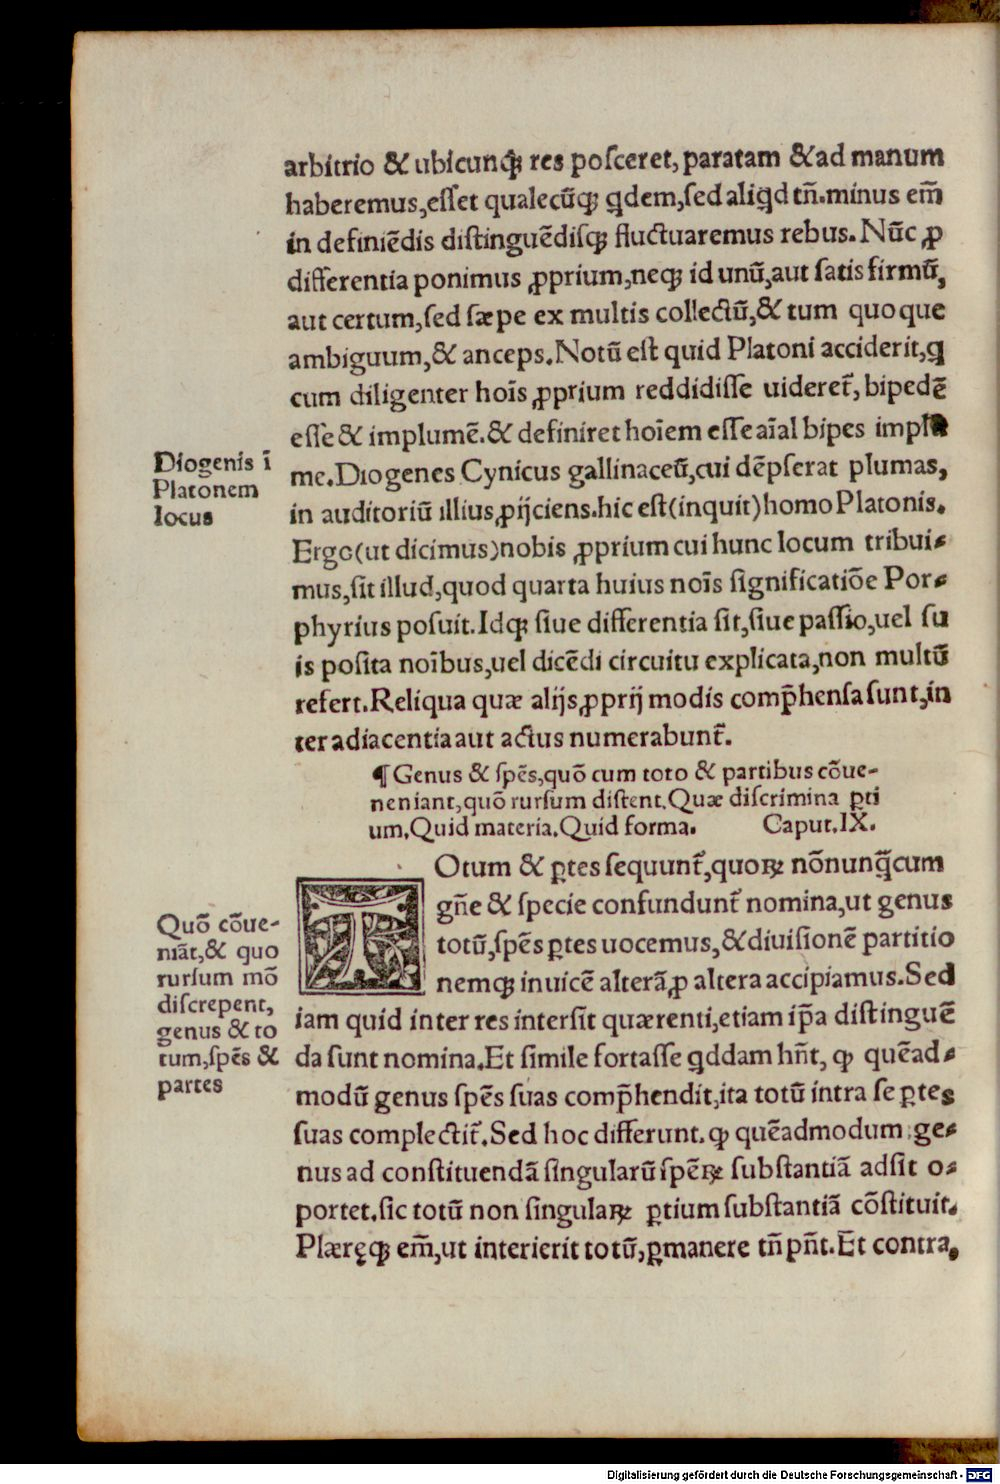 arbitrio & ubicunqꝫ res posceret, paratam & ad manum
haberemus, esset qualecũqꝫ qdem, sed aliqd tñ. minus em̃
in definiẽdis distinguẽdisqꝫ fluctuaremus rebus. Nũc ꝓ
differentia ponimus ꝓprium, neqꝫ id unũ, aut satis firmũ,
aut certum, sed sæpe ex multis collectũ, & tum quoque
ambiguum, & anceps. Notũ est quid Platoni acciderit, q
cum diligenter hoĩs ꝓprium reddidisse uideret̃, bipedẽ
esse & implumẽ. & definiret hoĩem esse aĩal bipes implu
Diogenis ĩ
Platonem
locus
me. Diogenes Cynicus gallinaceũ, cui dẽpserat plumas,
in auditoriũ illius, ꝓijciens. hic est (inquit) homo Platonis.
Ergo (ut dicimus) nobis ꝓprium cui hunc locum tribui-
mus, sit illud, quod quarta huius noĩs significatiõe Por-
phyrius posuit. Idqꝫ siue differentia sit, siue passio, uel su
is posita noĩbus, uel dicẽdi circuitu explicata, non multũ
refert. Reliqua quæ alijs, ꝓprij modis comp̃hensa sunt, in
ter adiacentia aut actus numerabunt̃.
¶ Genus & spẽs, quõ cum toto & partibus cõue-
neniant, quõ rursum distent. Quæ discrimina ꝑti
um, Quid materia. Quid forma. Caput. IX.
TOtum & ꝑtes sequunt̃, quoꝝ nõnunq̃cum
gñe & specie confundunt̃ nomina, ut genus
totũ, spẽs ꝑtes uocemus, & diuisionẽ partitio
nemqꝫ inuicẽ alterã, ꝓ altera accipiamus. Sed
Quõ cõue-
niãt, & quo
rursum mõ
discrepent,
genus & to
tum, spẽs &
partes
iam quid inter res intersit quærenti, etiam ip̃a distinguẽ
da sunt nomina. Et simile fortasse qddam hñt, ꝙ quẽad-
modũ genus spẽs suas comp̃hendit, ita totũ intra se ꝑtes
suas complectit̃. Sed hoc differunt. ꝙ quẽadmodum ge-
nus ad constituendã singularũ spẽꝝ substantiã adsit o-
portet. sic totũ non singulaꝝ ꝑtium substantiã cõstituit.
Plæręqꝫ em̃, ut interierit totũ, ꝑmanere tñ pñt. Et̃ contra,
Digitalisierung gefördert durch die Deutsche Forschungsgemeinschaft - DFG